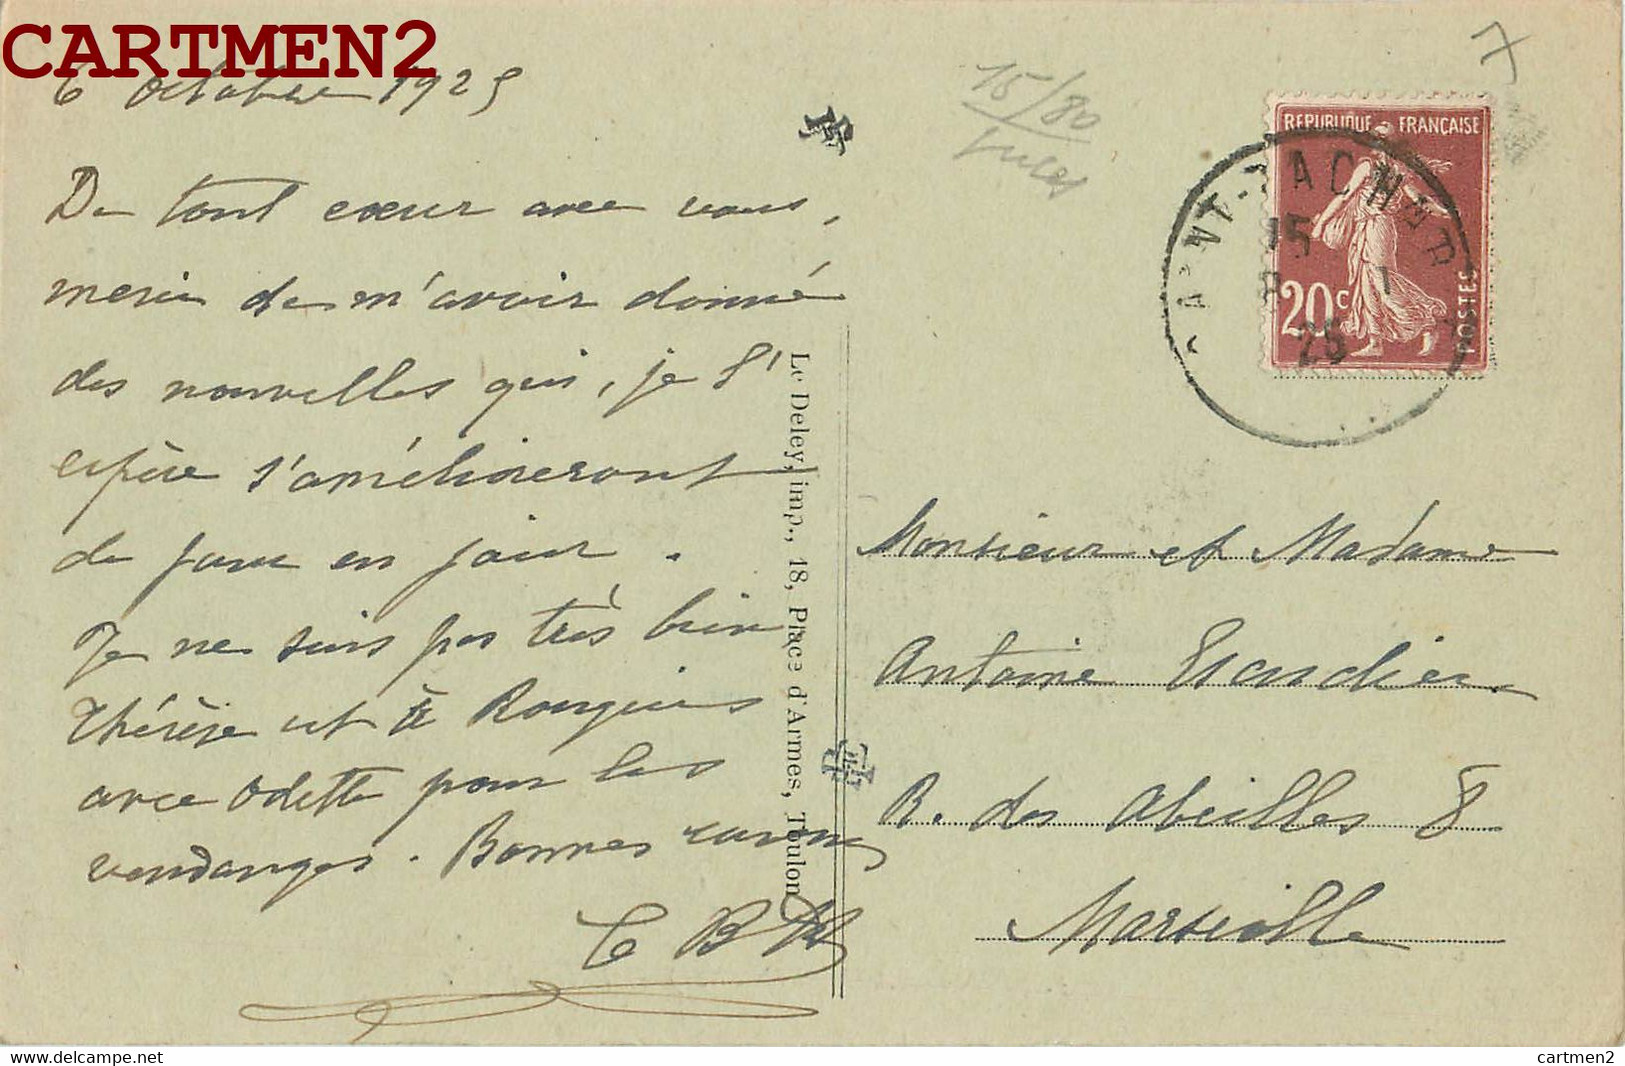 CARTMEN2
6 octobre 1925
De tout cœur avec vous,
merci de m'avoir donné
des nouvelles qui, je l'
espère s'amélioreront
de jour en jour.
Je ne suis pas très bien
Thérèse est à Rougiers
avec Odette pour les
vendanges. Bonnes
Le Deley, imp., 18, Place d'Armes, Toulon
15/80
REPUBLIQUE FRANÇAISE
POSTES
20c
25
Monsieur et Madame
Antoine Escudier
R. des Abeilles 8
Marseille
cartmen2